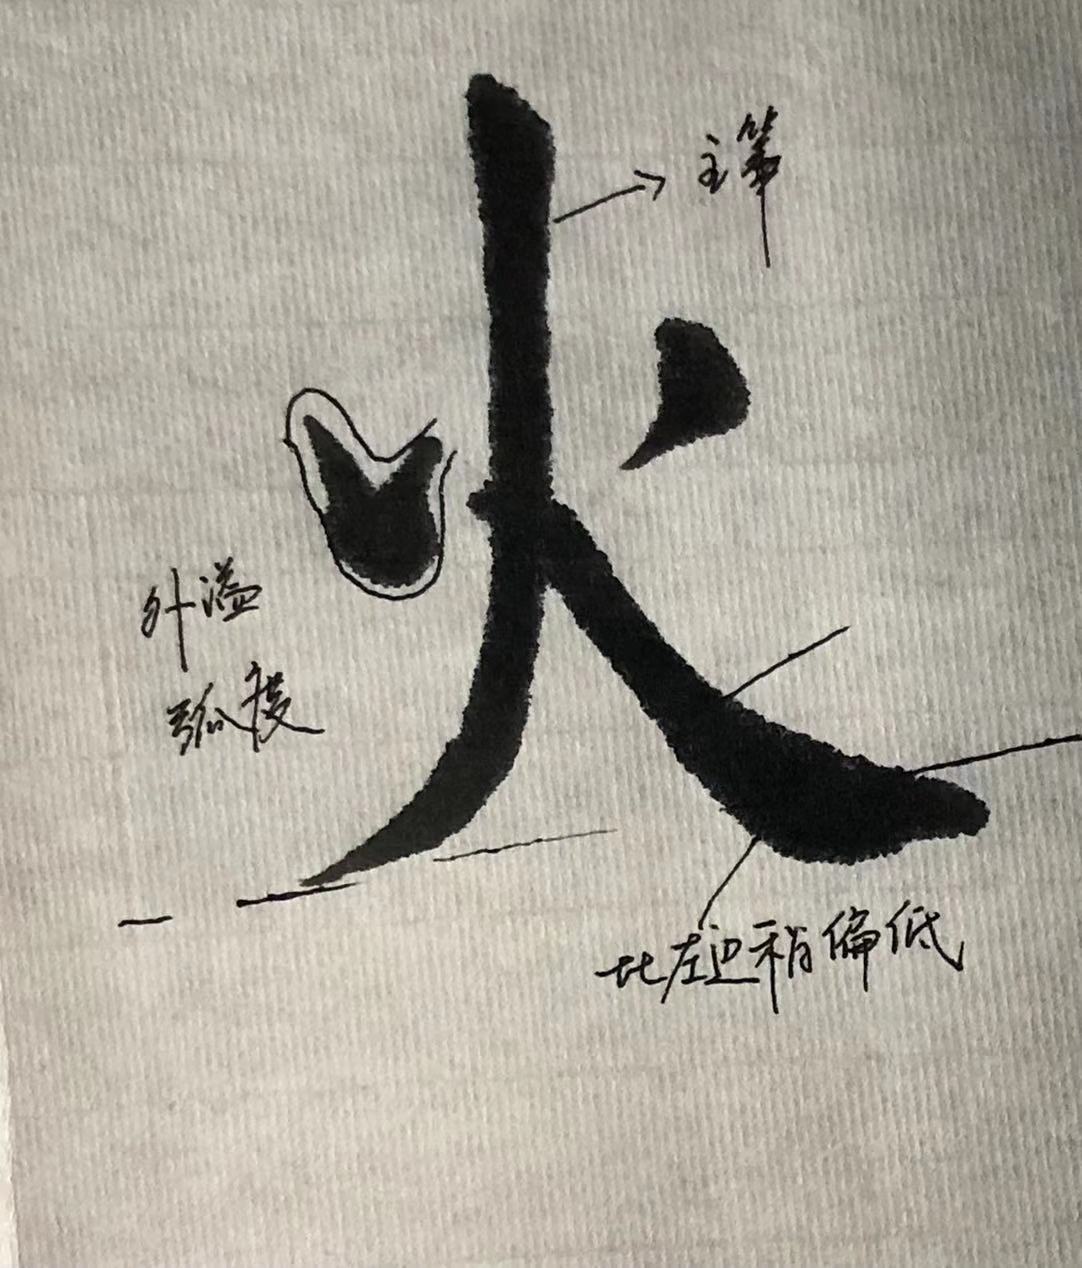 火
主笔
外溢
弧度
比左边稍偏低